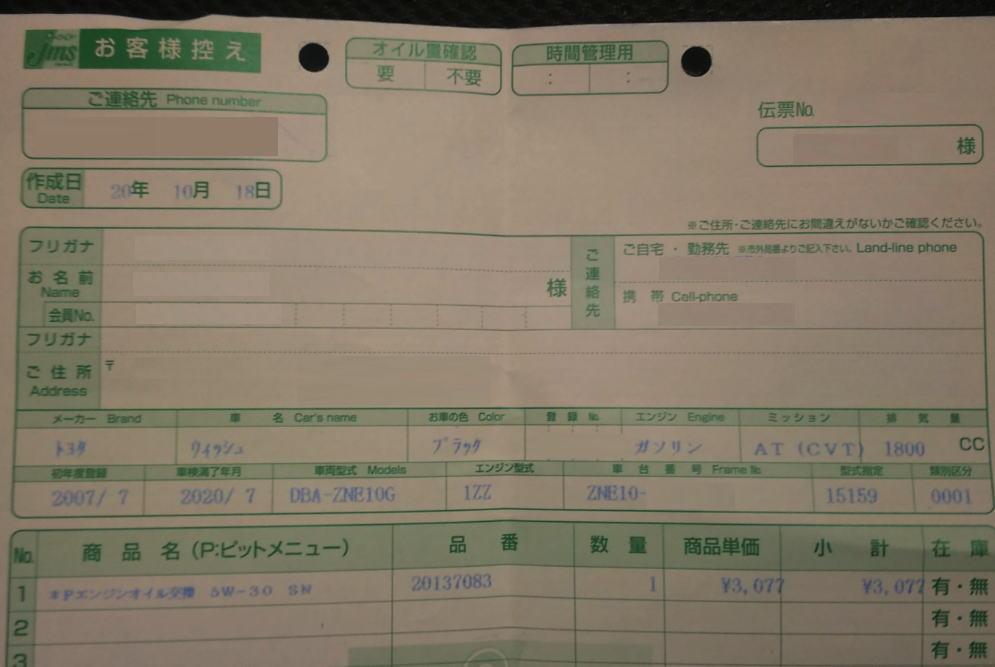 Jms お客様控え
オイル量確認
要 不要
時間管理用
: :
ご連絡先 Phone number
伝票No.
様
作成日 Date 20年 10月 18日
※ご住所・ご連絡先にお間違えがないかご確認ください。
フリガナ
お名前 Name 様
会員No.
ご連絡先
ご自宅・勤務先 ※市外局番よりご記入下さい。 Land-line phone
携帯 Cell-phone
フリガナ
ご住所 Address 〒
メーカー Brand 車名 Car's name お車の色 Color 登録No. エンジン Engine ミッション 排気量
トヨタ ウィッシュ ブラック ガソリン AT (CVT) 1800 CC
初年度登録 車検満了年月 車両型式 Models エンジン型式 車台番号 Frame No. 型式指定 類別区分
2007/ 7 2020/ 7 DBA-ZNE10G 1ZZ ZNE10- 15159 0001
No. 商品名 (P:ピットメニュー) 品番 数量 商品単価 小計 在庫
1 *Pエンジンオイル交換 5W-30 SN 20137083 1 ¥3,077 ¥3,077 有・無
2 有・無
3 有・無